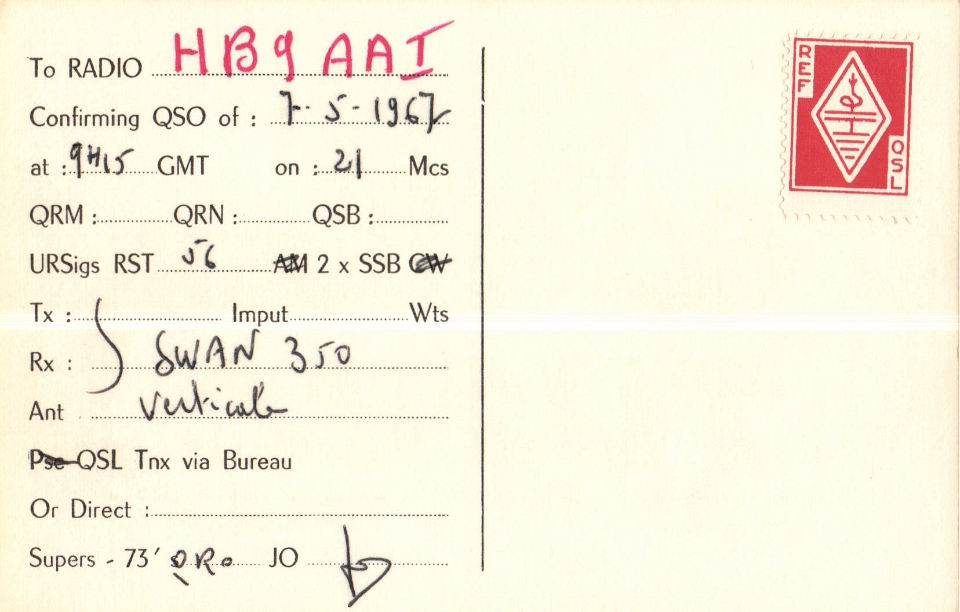 To RADIO HB9AAI
Confirming QSO of : 7-5-1967
at : 9H15 GMT on : 21 Mcs
QRM : QRN : QSB :
URSigs RST 56 AM 2 x SSB CW
Tx : Imput Wts
Rx : SWAN 350
Ant verticale
Pse QSL Tnx via Bureau
Or Direct :
Supers - 73' QRO JO
REF
QSL